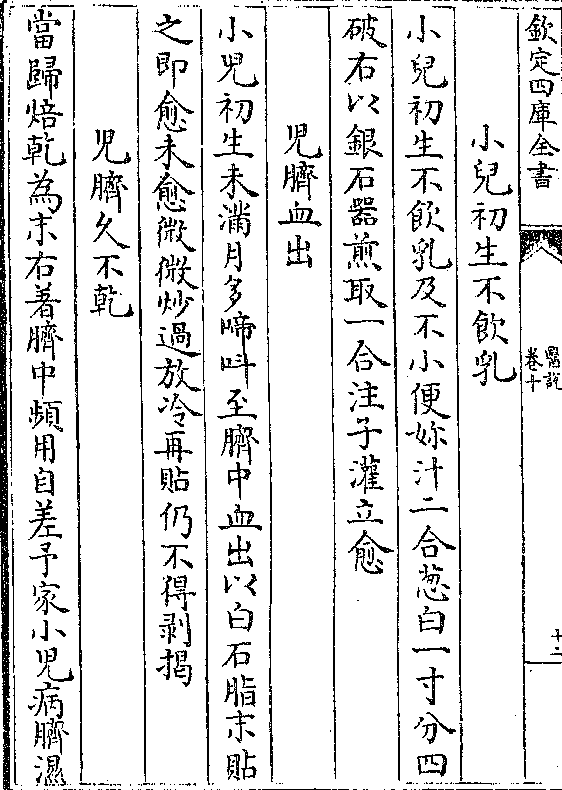 欽定四庫全書
醫說
卷十
十二
小兒初生不飲乳
小兒初生不飲乳及不小便妳汁二合葱白一寸分四
破右以銀石器煎取一合注子灌立愈
児臍血出
小児初生未滿月多啼呌至臍中血出以白石脂末貼
之即愈未愈微微炒過放冷再貼仍不得剥揭
児臍久不乾
當歸焙乾為末右着臍中頻用自差予家小児病臍濕